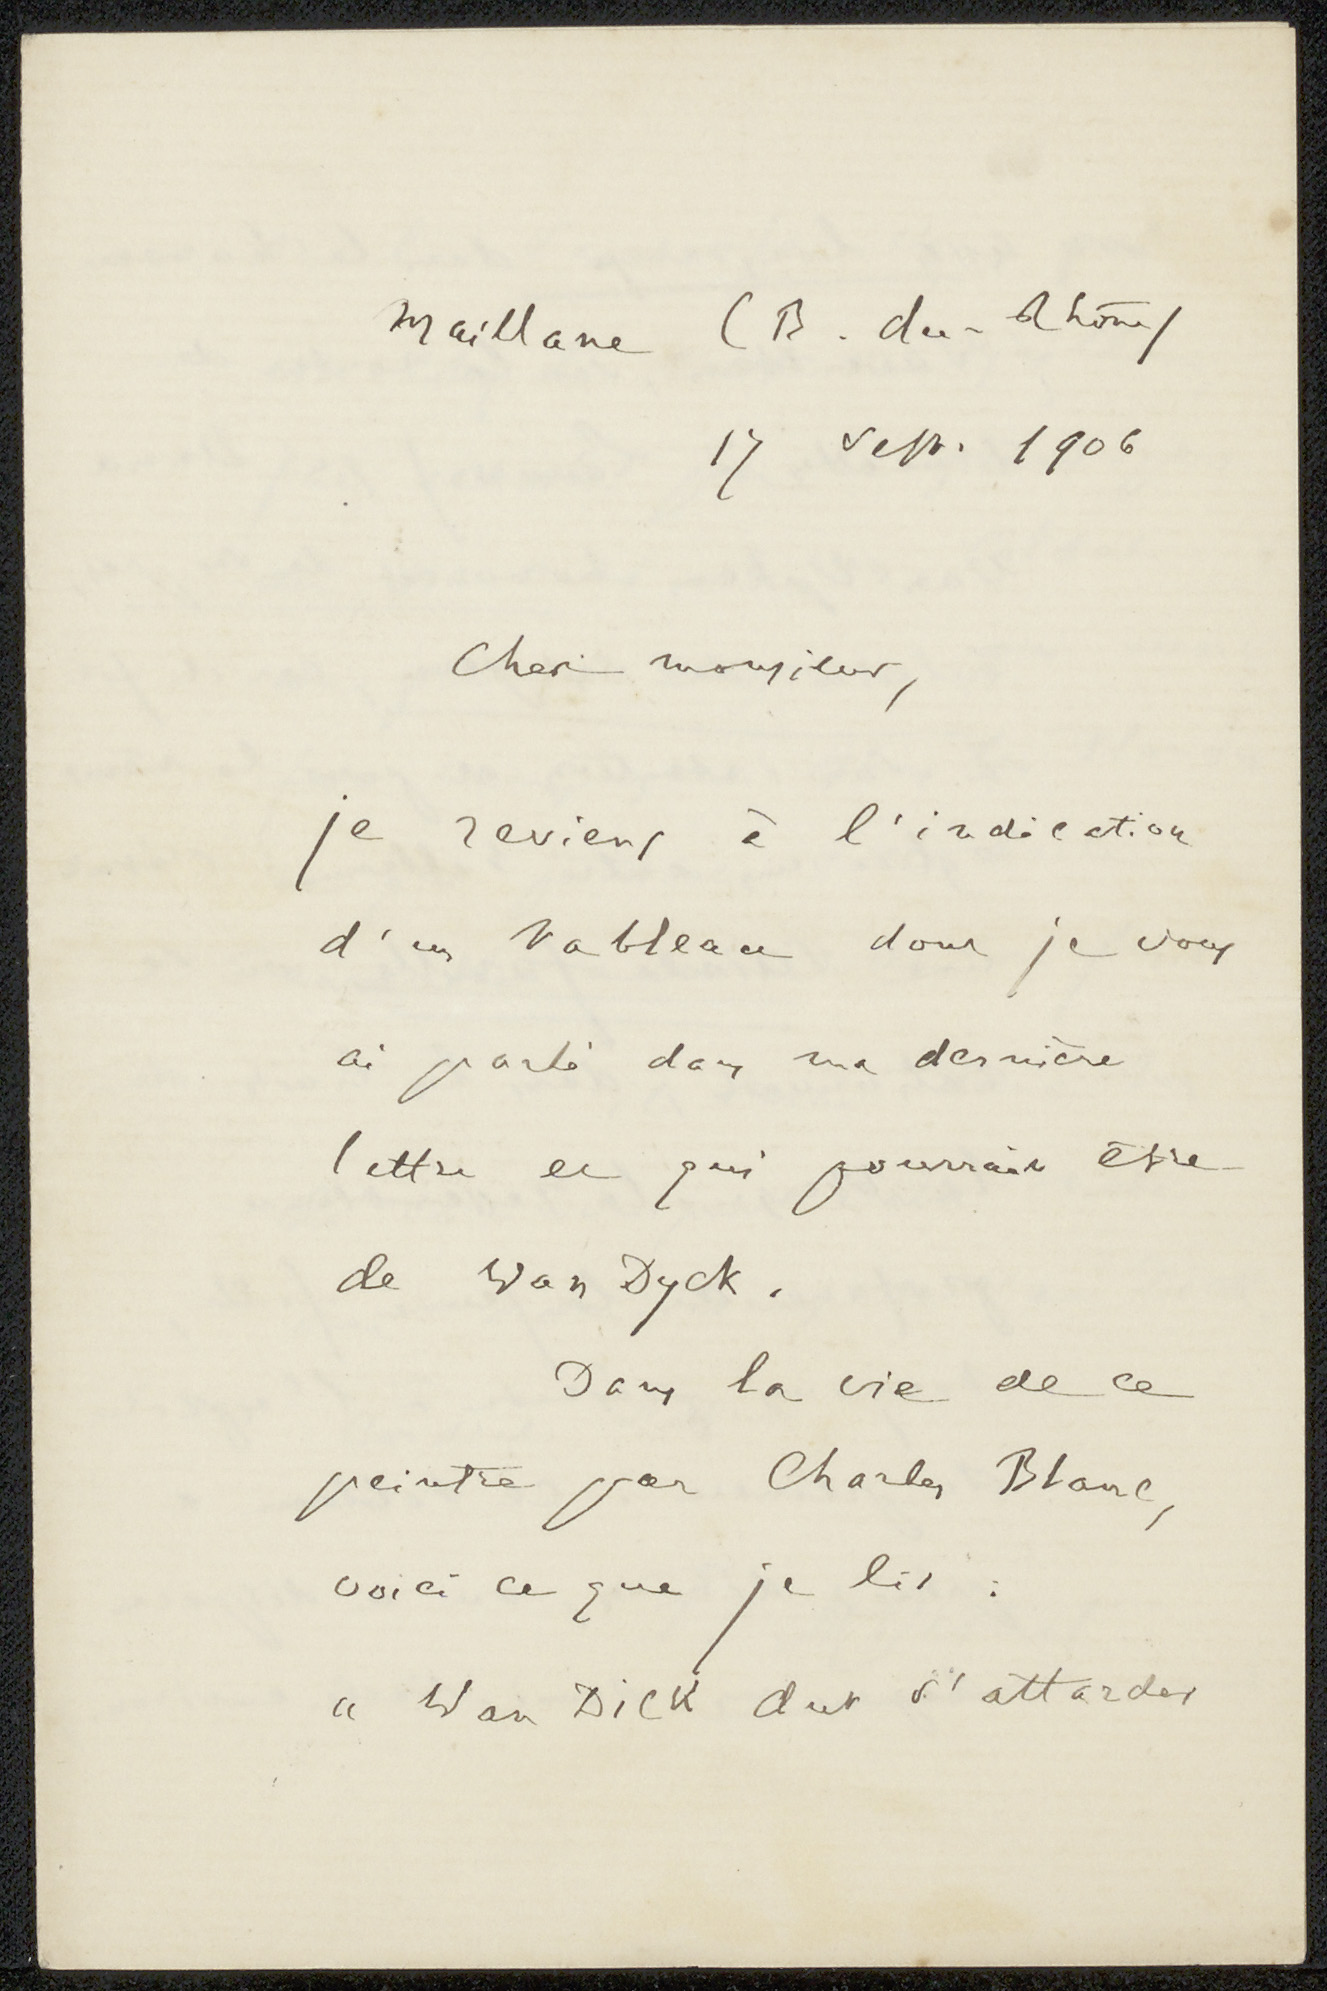 Maillane (B. du-Rhône)
17 sept. 1906
Cher monsieur,
je reviens à l'indication
d'un tableau dont je vous
ai parlé dans ma dernière
lettre et qui pourrait être
de Wan Dyck.
Dans la vie de ce
peintre par Charles Blanc,
voici ce que je lis :
« Wan Dick dut s'attarder